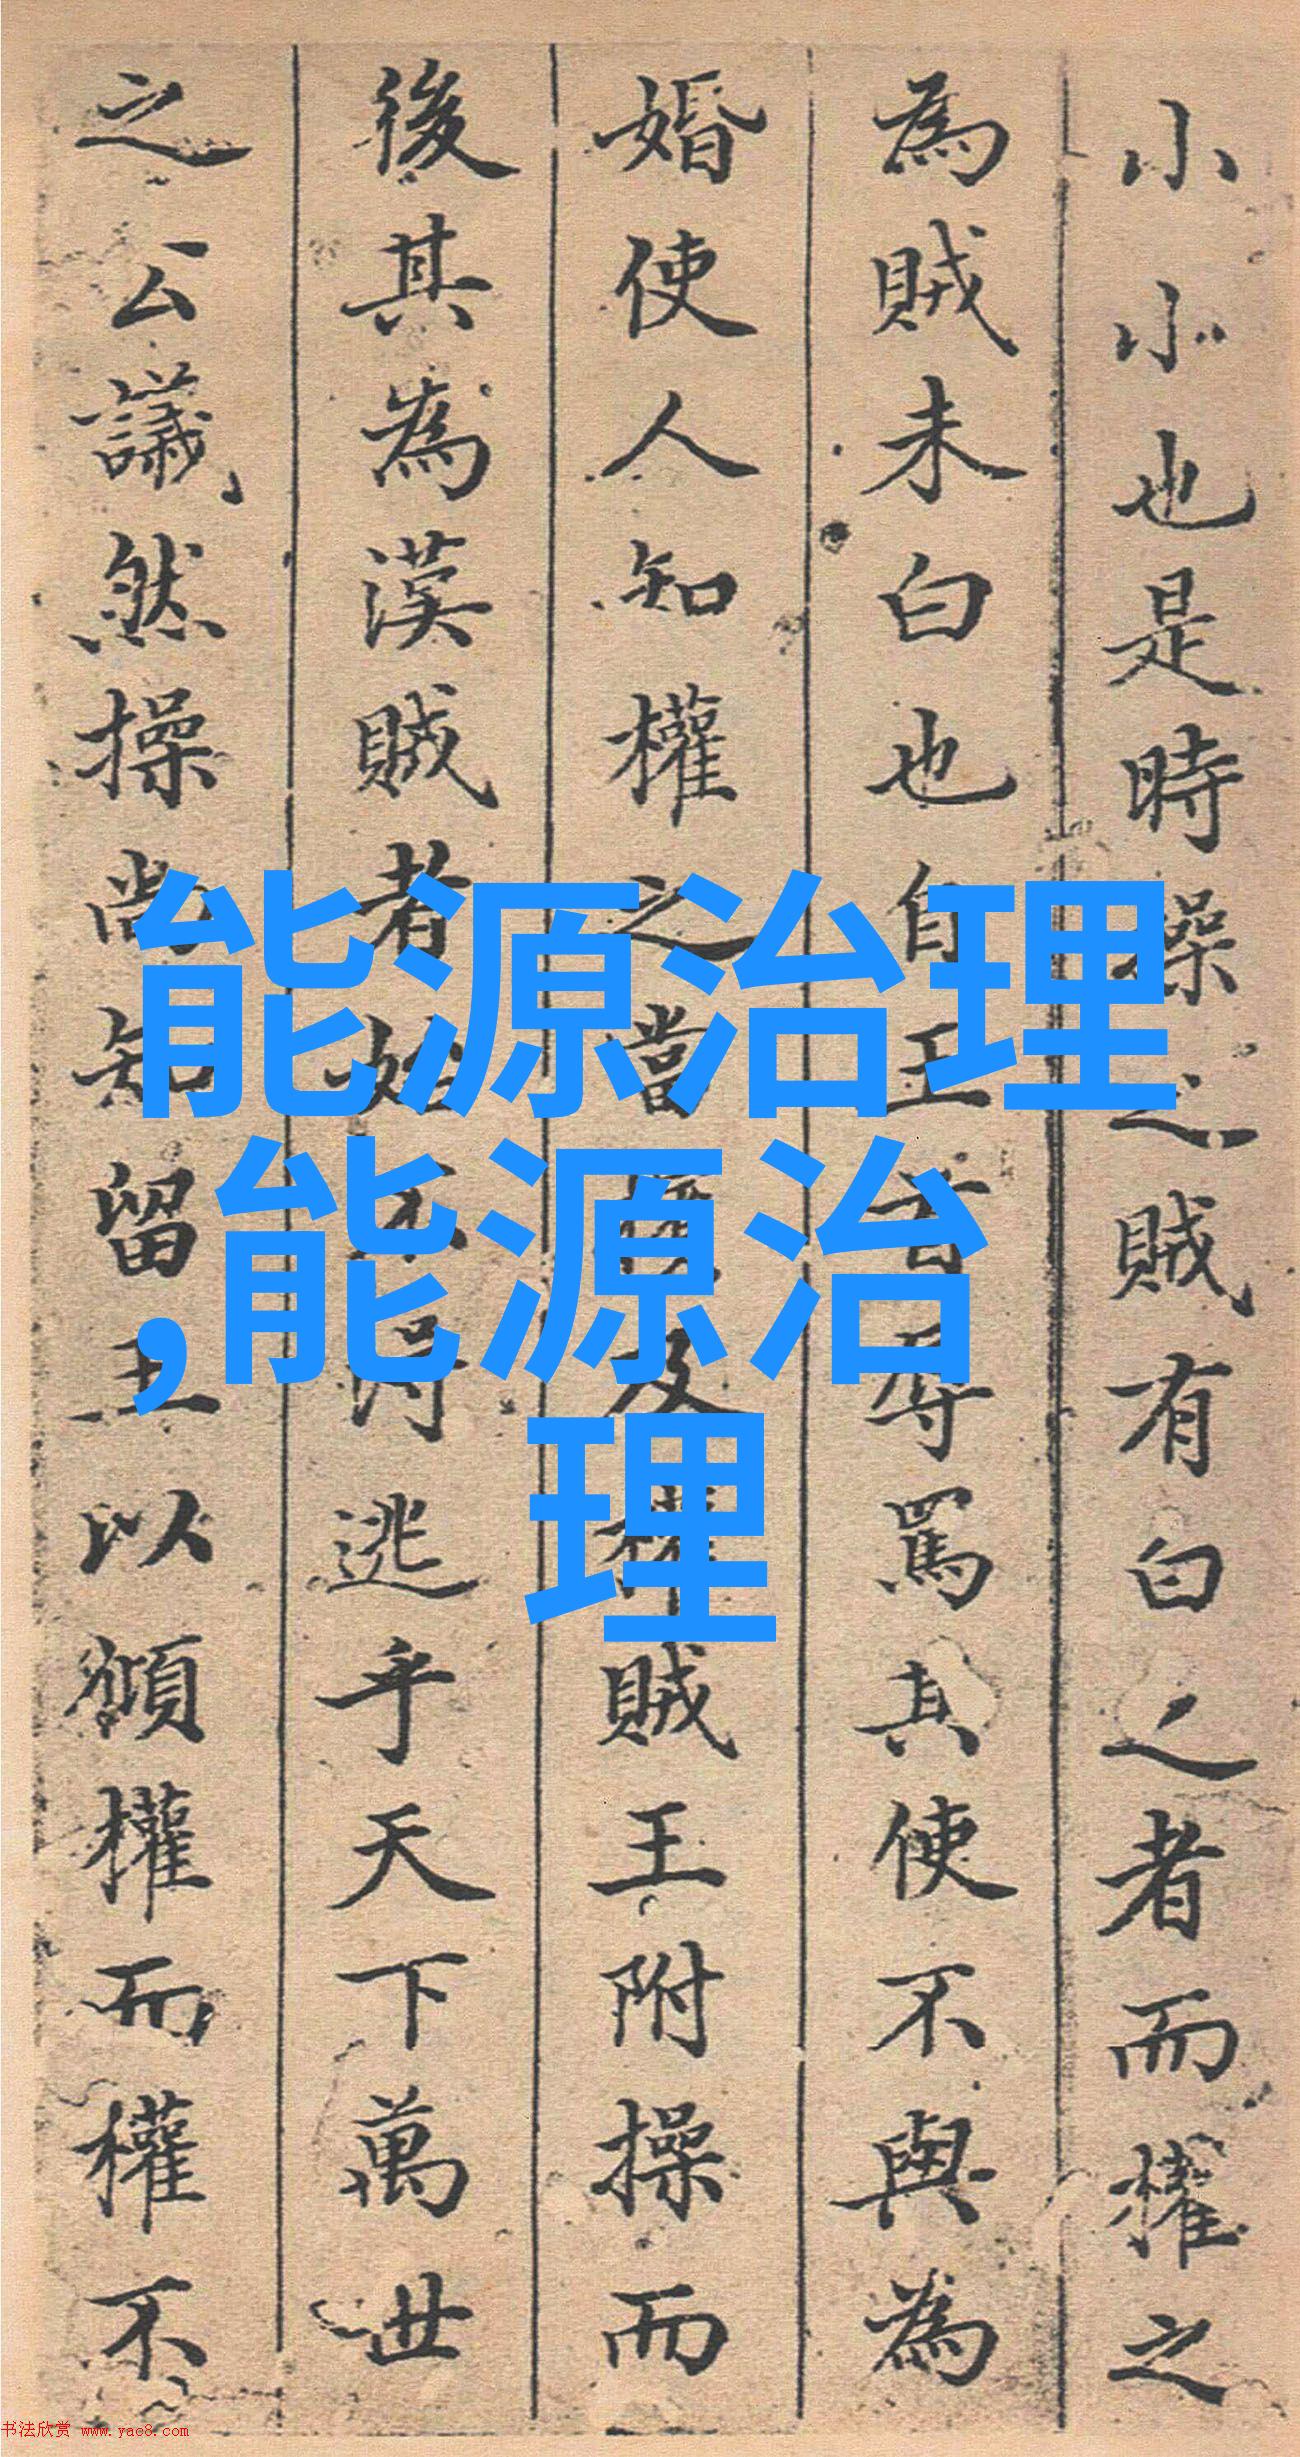 小小也是時操之賊有白之者而權之
為賊未白也自王辱罵其使不與為
婚使人知權之當及權賊王附操而
後其為漢賊者始不得逃乎天下萬世
之公議然操尚知留王以權而權不
能源治理
,能源治
理
书法欣赏 www.yac8.com